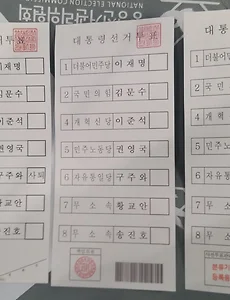 중앙선거관리위원회
NATIONAL ELECTION COMMISSION
이재명
김문수
이준석
권영국
구주와 사퇴
황교안
송진호
대통령선거투표
1 더불어민주당 이재명
2 국민의힘 김문수
4 개혁신당 이준석
5 민주노동당 권영국
6 자유통일당 구주와
7 무소속 황교안
8 무소속 송진호
대통령
1 더불어민
2 국민
4 개혁
5 민주노
6 자유통
7 무소
8 무소